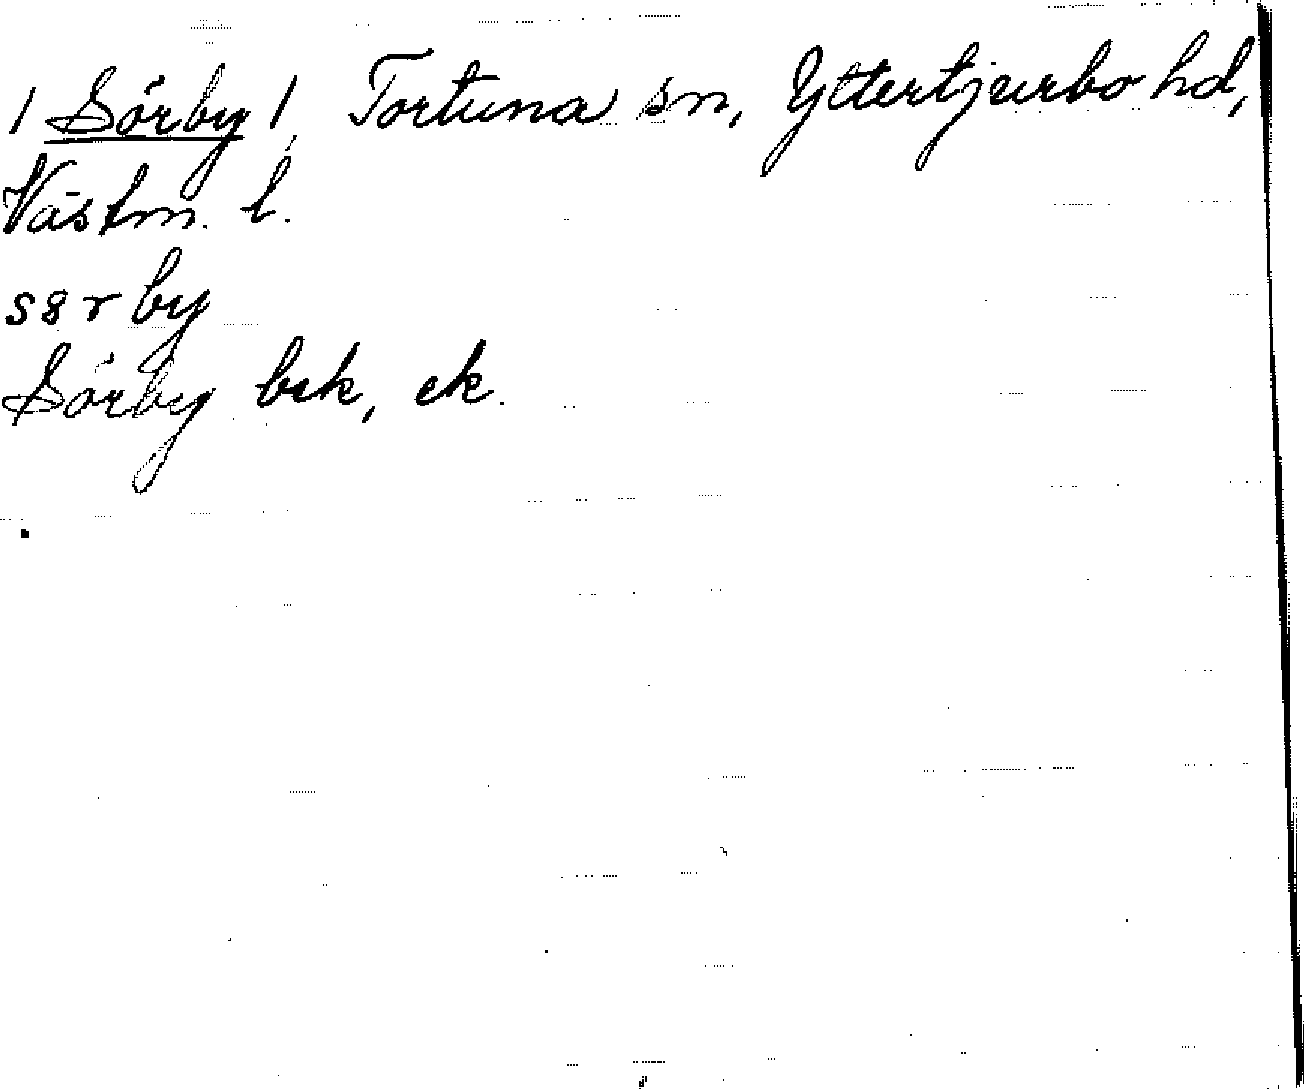 / Sörby /, Tortuna sn, Yttertjurbo hd,
Västm. l.
s8rby
Sörby bek, ek.